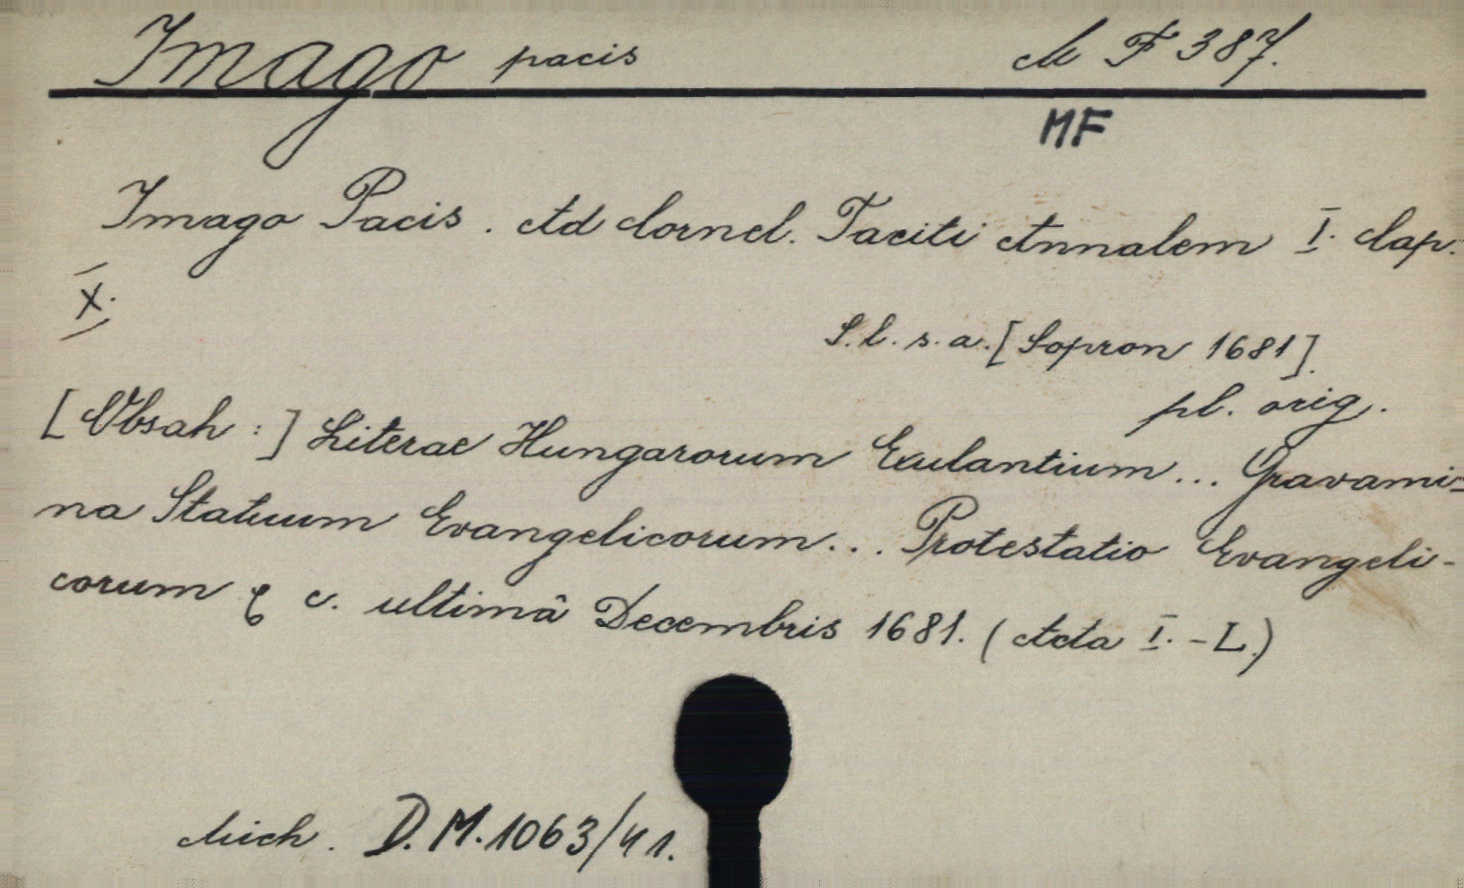 Imago pacis M F 387.
MF
Imago Pacis. Ad Cornel. Taciti Annalem I. Cap.
X.
S. l. s. a. [Sopron 1681].
pl. orig.
[Obsah:] Literae Hungarorum Exulantium... Gravami=
na Statuum Evangelicorum... Protestatio Evangeli-
corum & c. ultimâ Decembris 1681. (Acta I. - L.)
Mich. D. M. 1063/41.